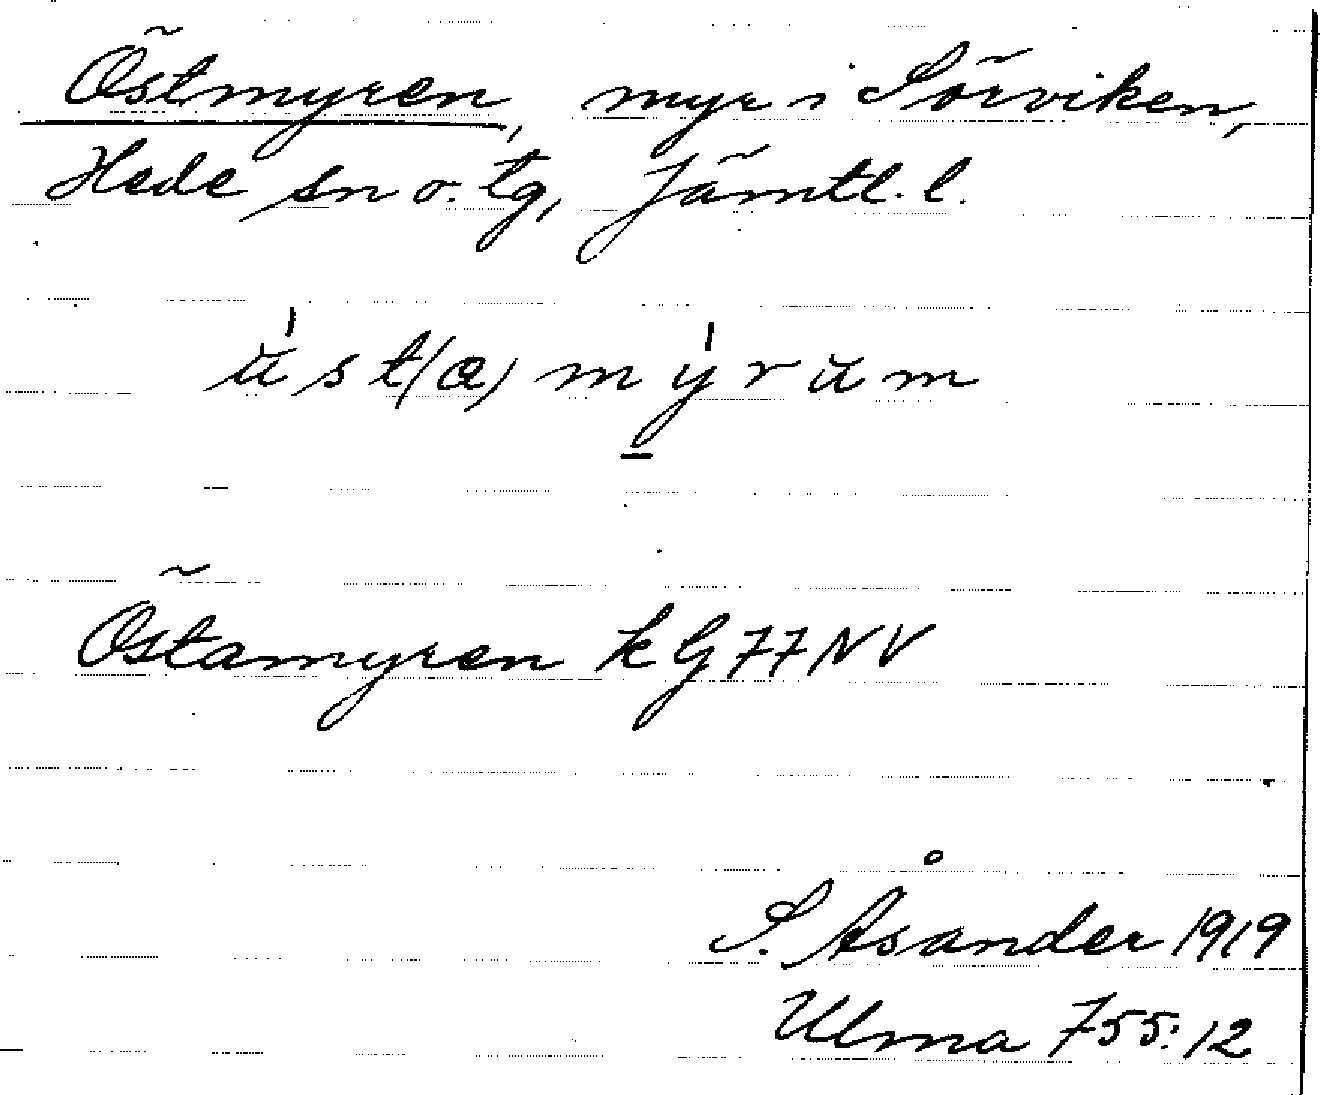 Östmyren, myr i Sörviken,
Hede sn o. tg, Jämtl. l.
ùst(a)mýrum
Östamyren kG77NV
S. Åsander 1919
Ulma 755:12